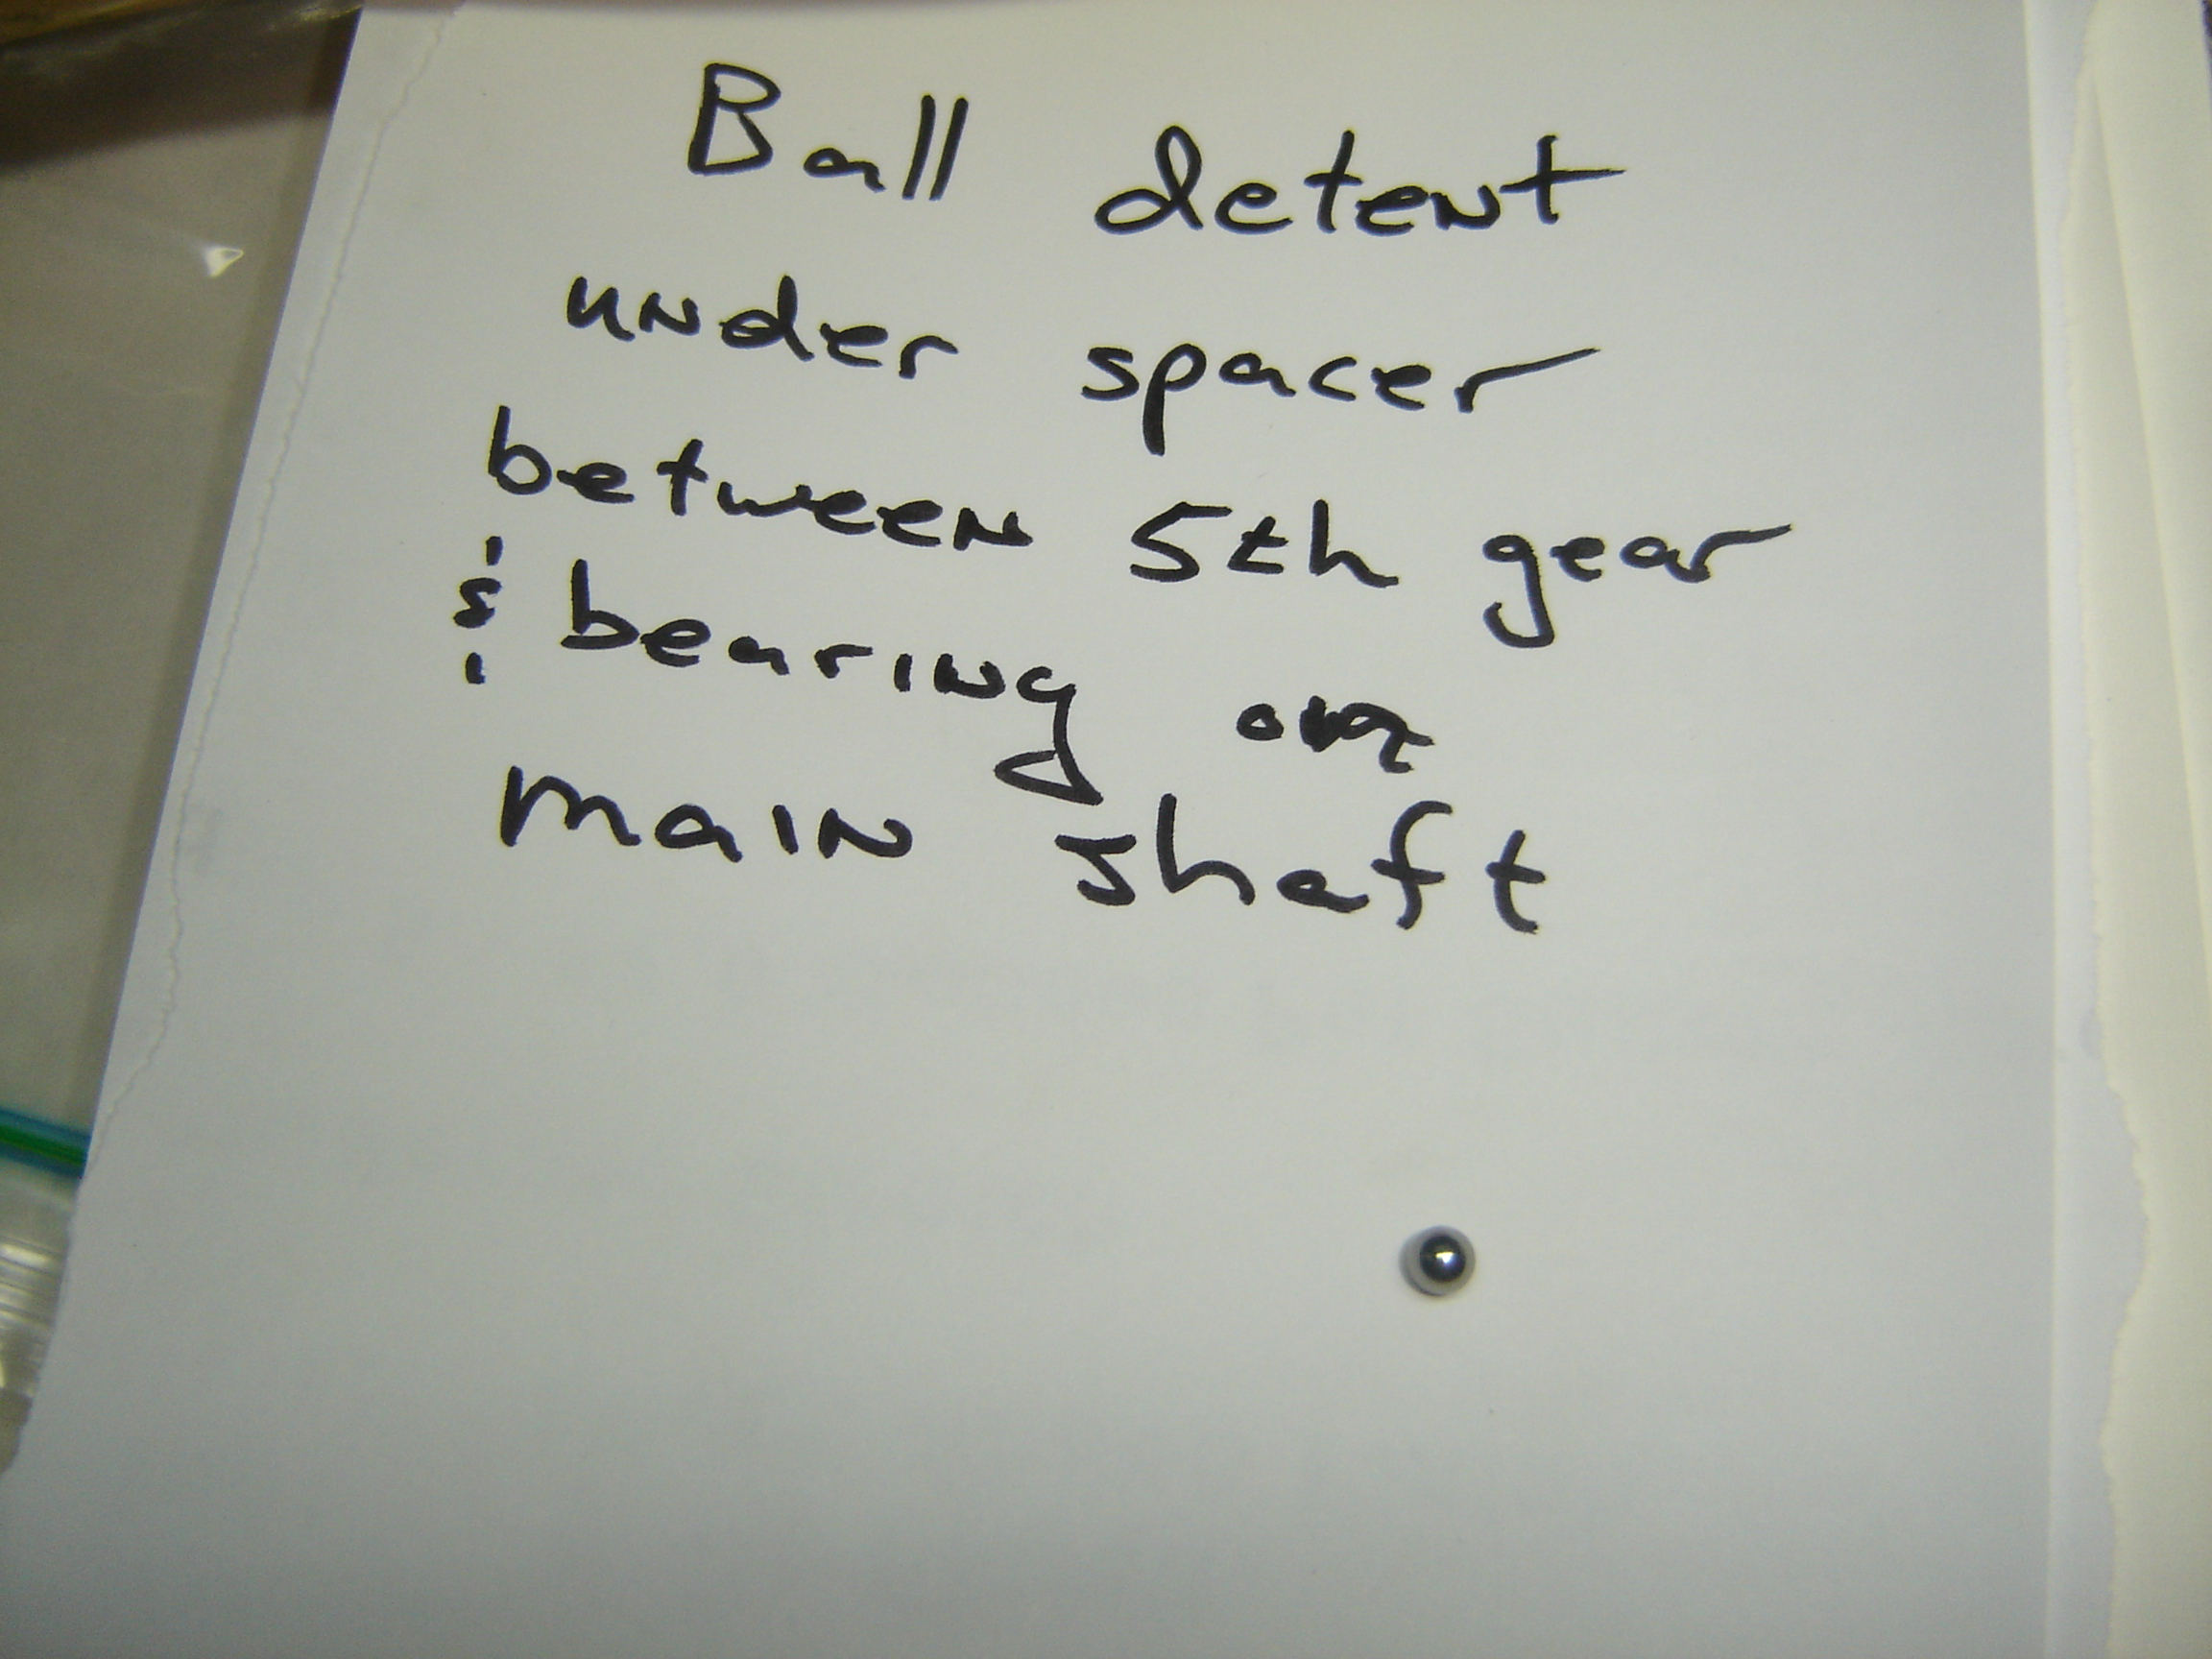 Ball detent
under spacer
between 5th gear
& bearing on
main shaft